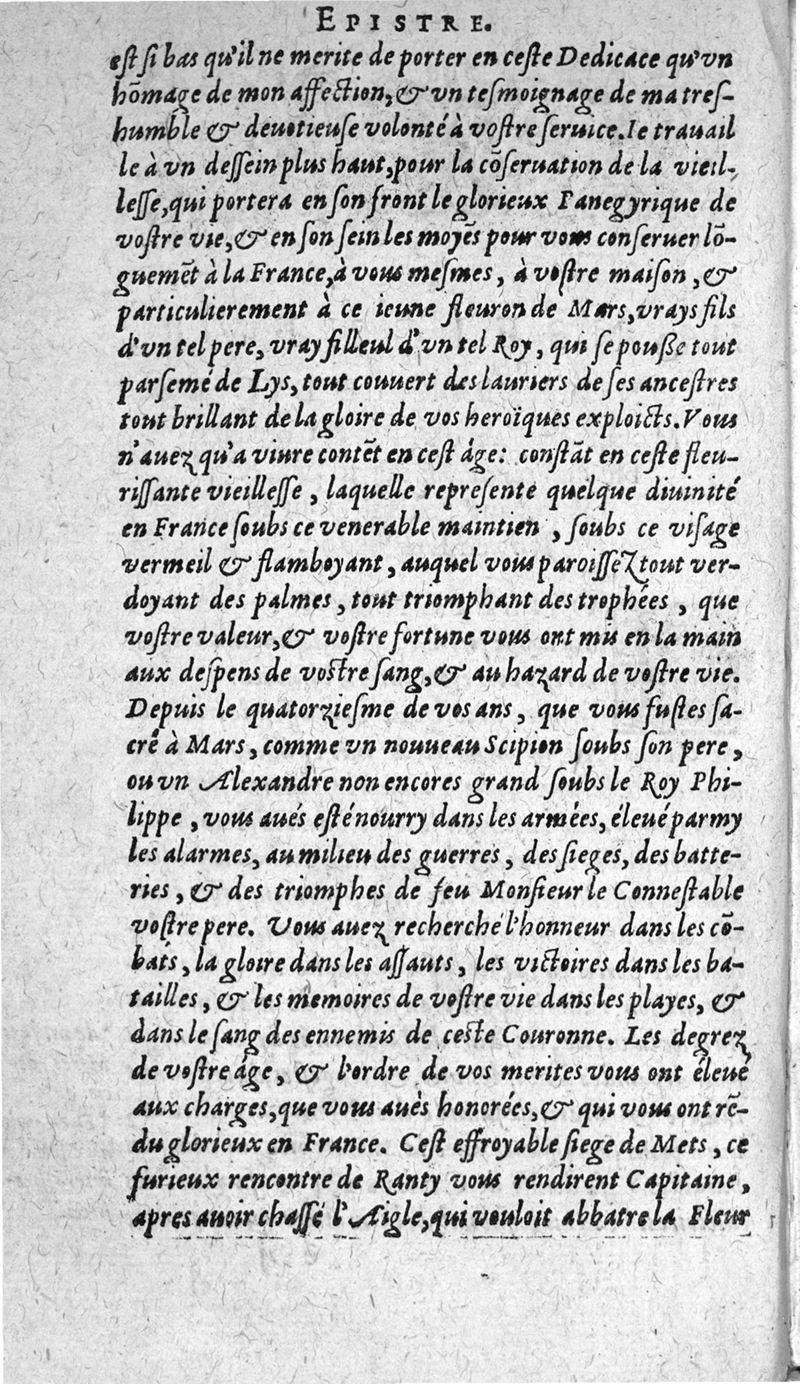 EPISTRE.
est si bas qu'il ne merite de porter en ceste Dedicace qu'vn
hõmage de mon affection, & vn tesmoignage de ma tres-
humble & deuotieuse volonté à vostre seruice. Ie trauail
le à vn dessein plus haut, pour la cõseruation de la vieil-
lesse, qui portera en son front le glorieux Panegyrique de
vostre vie, & en son sein les moyẽs pour vous conseruer lõ-
guemẽt à la France, à vous mesmes, à vostre maison, &
particulierement à ce ieune fleuron de Mars, vrays fils
d'vn tel pere, vray filleul d'vn tel Roy, qui se pousse tout
parsemé de Lys, tout couuert des lauriers de ses ancestres
tout brillant de la gloire de vos heroïques exploicts. Vous
n'auez qu'a viure contẽt en cest âge: constãt en ceste fleu-
rissante vieillesse, laquelle represente quelque diuinité
en France soubs ce venerable maintien, soubs ce visage
vermeil & flamboyant, auquel vous paroissez tout ver-
doyant des palmes, tout triomphant des trophées, que
vostre valeur, & vostre fortune vous ont mis en la main
aux despens de vostre sang, & au hazard de vostre vie.
Depuis le quatorziesme de vos ans, que vous fustes sa-
cré à Mars, comme vn nouueau Scipion soubs son pere,
ou vn Alexandre non encores grand soubs le Roy Phi-
lippe, vous aués esté nourry dans les armées, éleué parmy
les alarmes, au milieu des guerres, des sieges, des batte-
ries, & des triomphes de feu Monsieur le Connestable
vostre pere. Vous auez recherché l'honneur dans les cõ-
bats, la gloire dans les assauts, les victoires dans les ba-
tailles, & les memoires de vostre vie dans les playes, &
dans le sang des ennemis de ceste Couronne. Les degrez
de vostre âge, & l'ordre de vos merites vous ont éleué
aux charges, que vous auès honorées, & qui vous ont rẽ-
du glorieux en France. Cest effroyable siege de Mets, ce
furieux rencontre de Ranty vous rendirent Capitaine,
apres auoir chassé l'Aigle, qui vouloit abbatre la Fleur